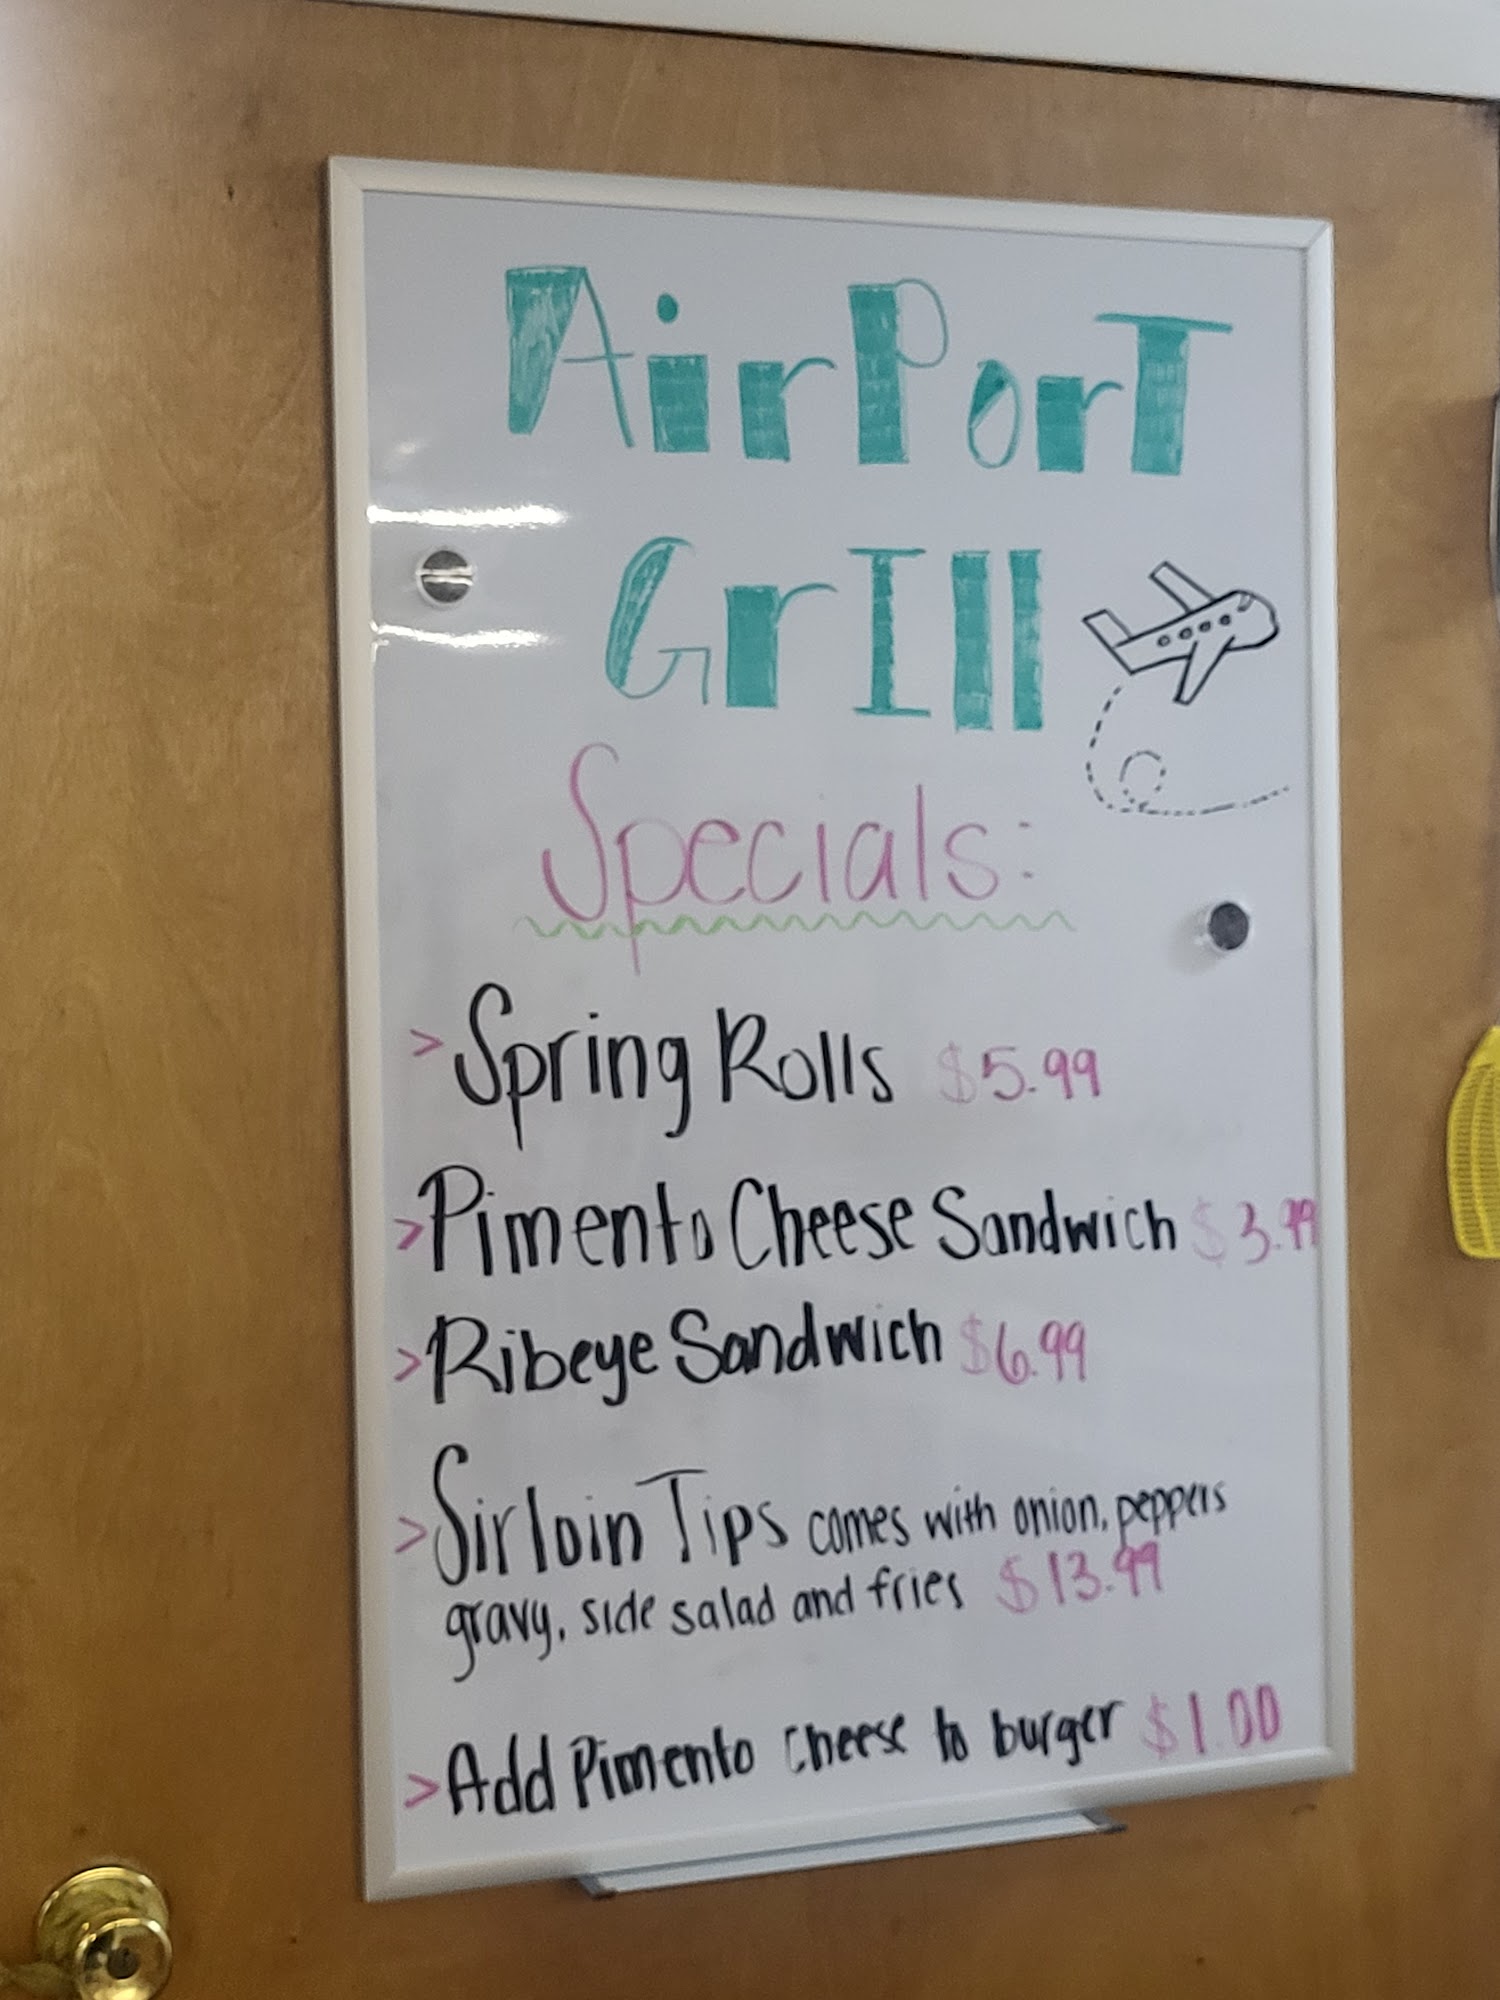 AirPorT
GrIll
Specials:
> Spring Rolls $5.99
> Pimento Cheese Sandwich $3.99
> Ribeye Sandwich $6.99
> Sirloin Tips comes with onion, peppers
gravy, side salad and fries $13.99
> Add Pimento cheese to burger $1.00